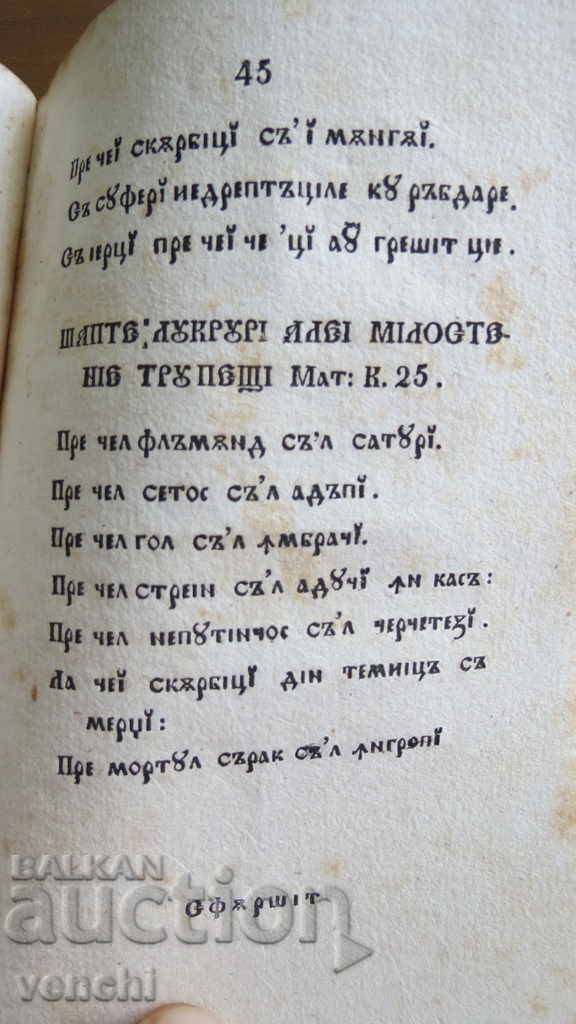 45
Пре чеї скѫрбіцї съ'ї мѫнгѫї.
Съ сꙋферї недрептъціле кꙋ ръбдаре.
Съ ıерцї пре чеї че 'цї аꙋ грешіт ціе.
ШАПТЕ ЛꙊКРꙊРІ АЛЕІ МІЛОСТЕ-
НІЕ ТРꙊПЕЩІ Мат: К. 25.
Пре чел флъмѫнд съ'л сатꙋрї.
Пре чел сетос съ'л адъпї.
Пре чел гол съ'л ꙟмбрачї.
Пре чел стреін съ'л адꙋчї ꙟн касъ:
Пре чел непꙋтінчос съ'л черчетезї.
Ла чеї скѫрбіцї дін темніцъ съ
мерџї:
Пре мортꙋл сърак съ'л ꙟнгропї
Сфѫршіт
BALKAN
auction
venchi